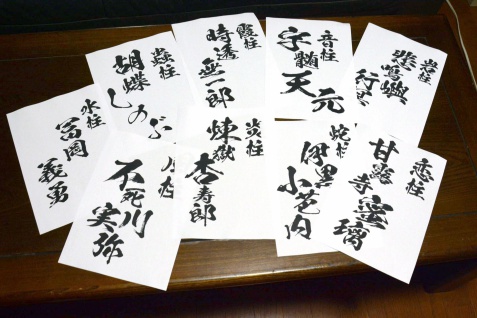 蟲柱
胡蝶
しのぶ
霞柱
時透
無一郎
音柱
宇髄
天元
岩柱
悲鳴嶼
行
水柱
冨岡
義勇
柱
不死川
実弥
炎柱
煉獄
杏寿郎
蛇柱
伊黒
小芭内
恋柱
甘露寺
蜜璃